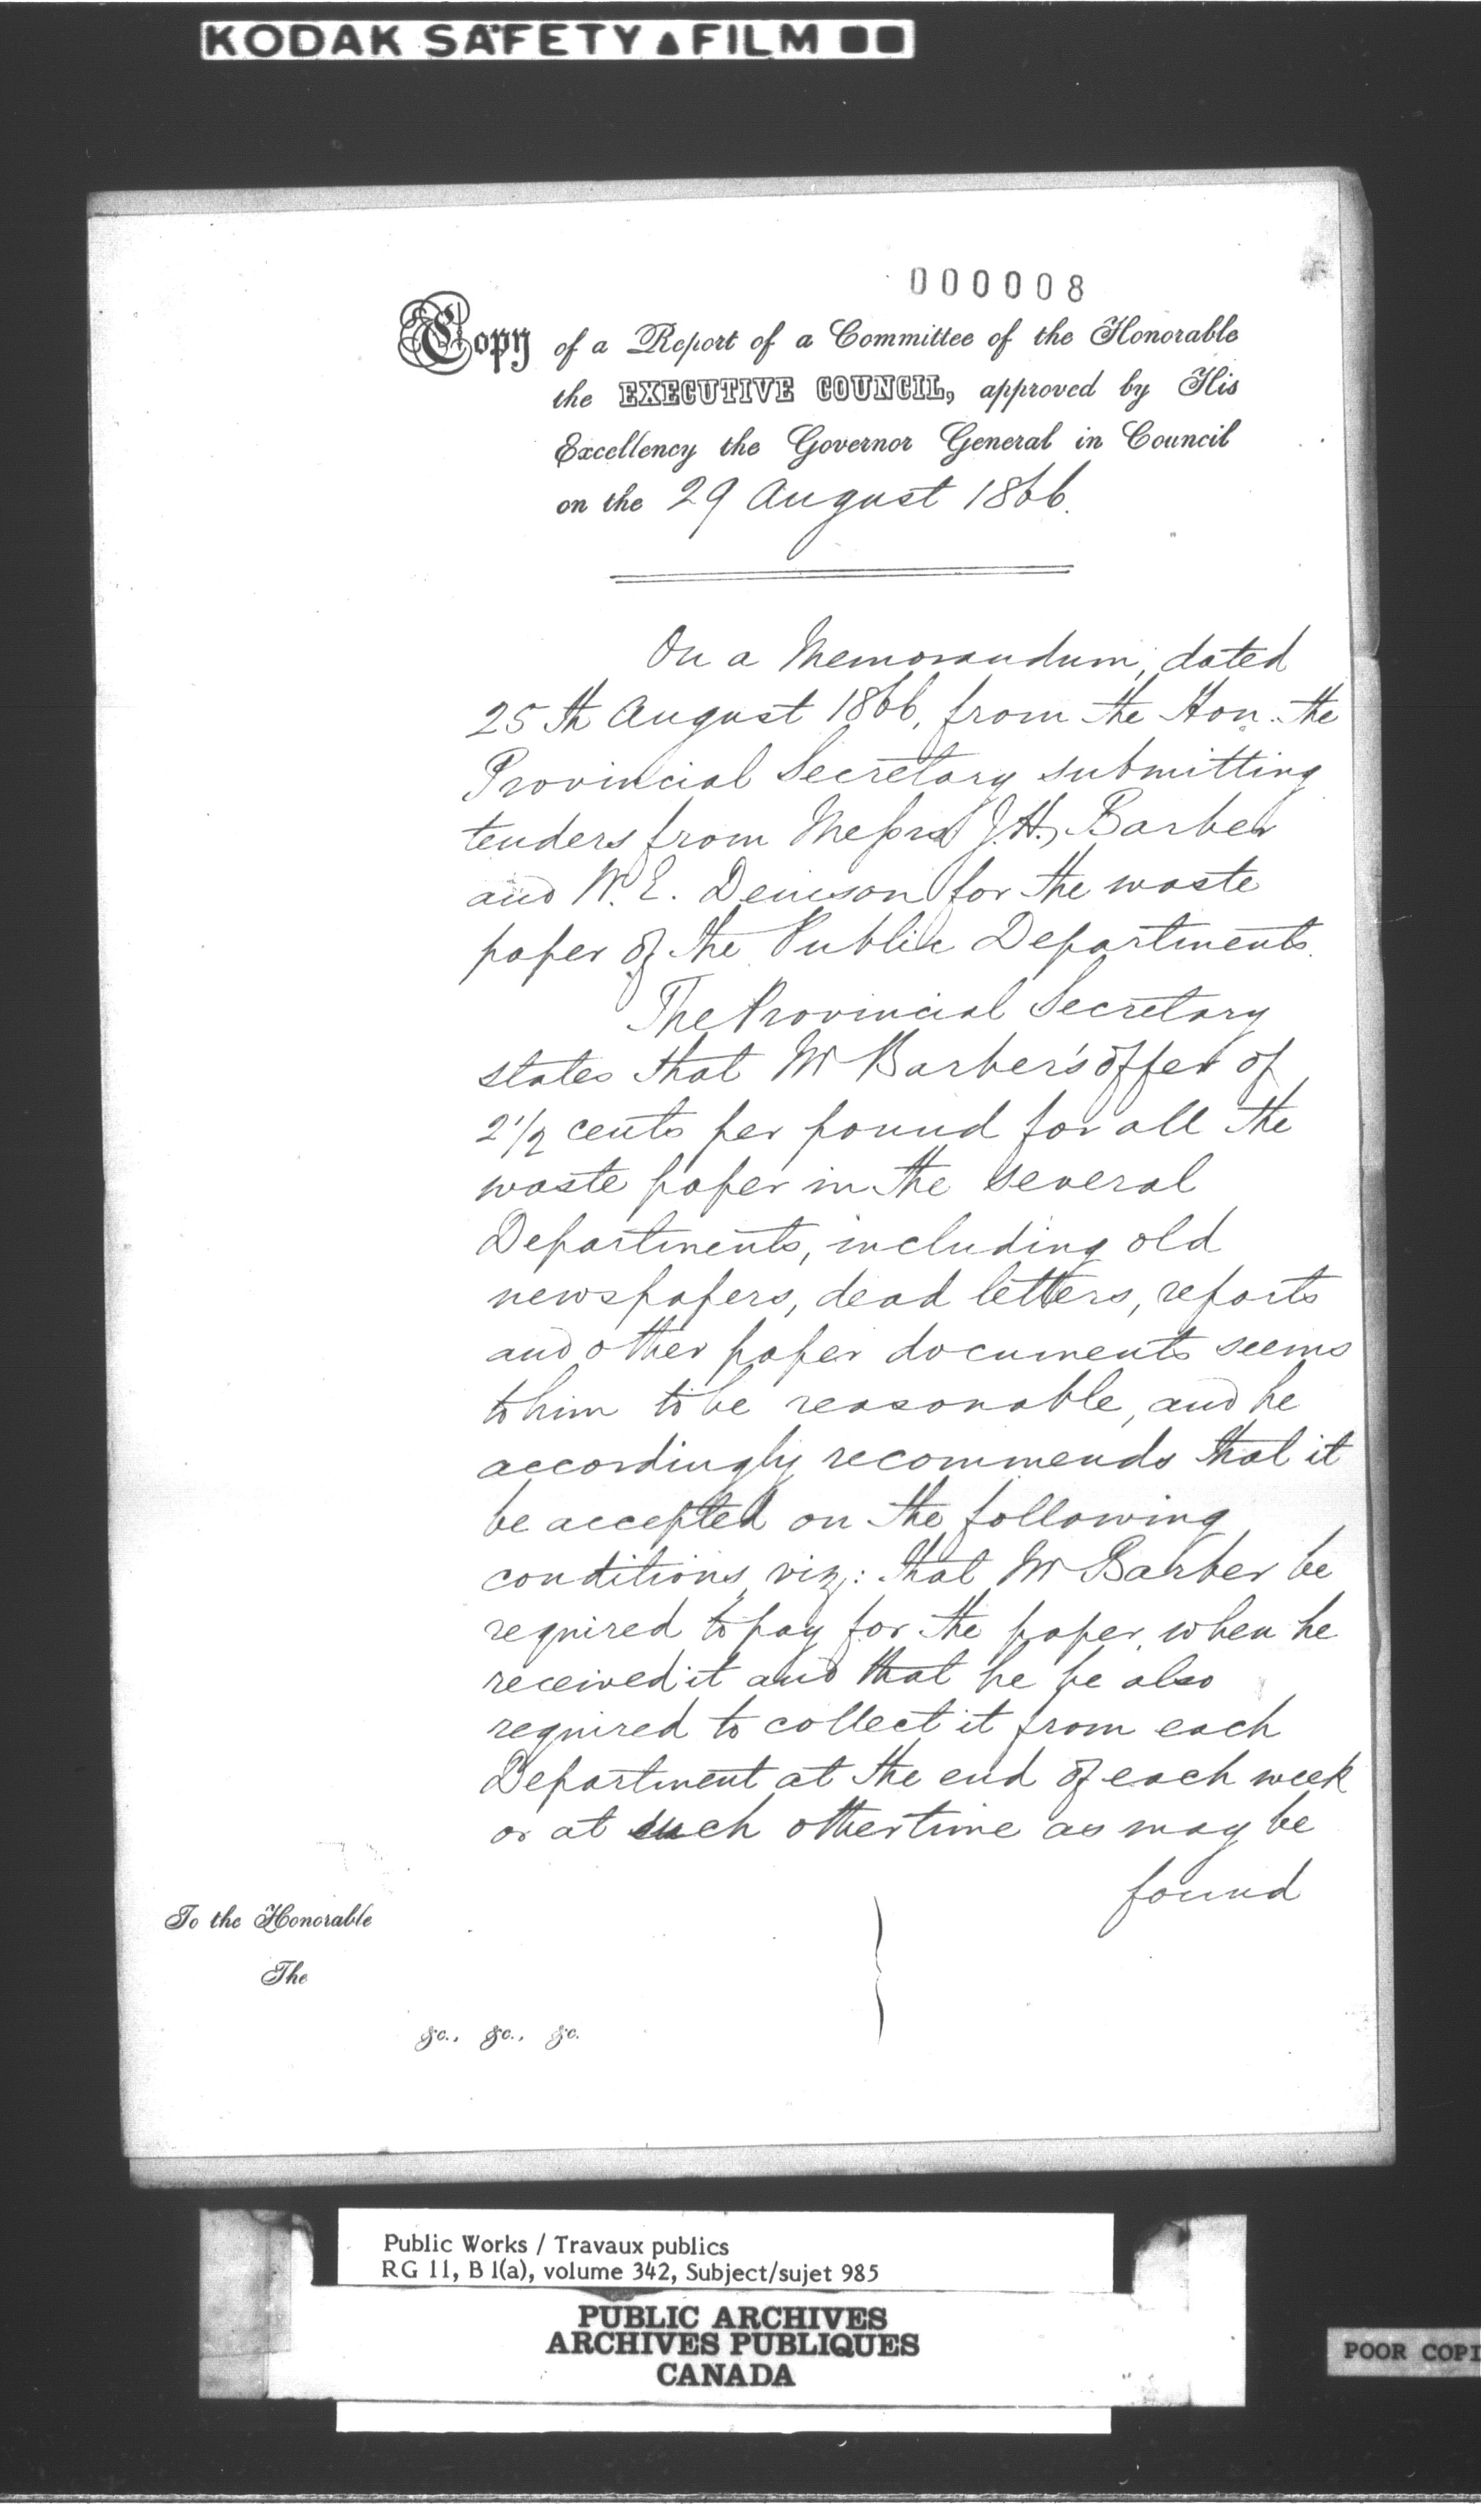 KODAK SAFETY ▲ FILM
000008
Copy of a Report of a Committee of the Honorable
the EXECUTIVE COUNCIL, approved by His
Excellency the Governor General in Council
on the 29 August 1866.
On a Memorandum, dated
25th August 1866, from the Hon. the
Provincial Secretary submitting
tenders from Messrs J. H. Barber
and W. E. Denison for the waste
paper of the Public Departments.
The Provincial Secretary
states that Mr Barber's offer of
2 1/2 cents per pound for all the
waste paper in the several
Departments, including old
newspapers, dead letters, reports
and other paper documents seems
to him to be reasonable, and he
accordingly recommends that it
be accepted on the following
conditions, viz: that Mr Barber be
required to pay for the paper when he
received it and that he be also
required to collect it from each
Department at the end of each week
or at such other time as may be
found
To the Honorable
The
&c., &c., &c.
Public Works / Travaux publics
RG 11, B 1(a), volume 342, Subject/sujet 985
PUBLIC ARCHIVES
ARCHIVES PUBLIQUES
CANADA
POOR COPI